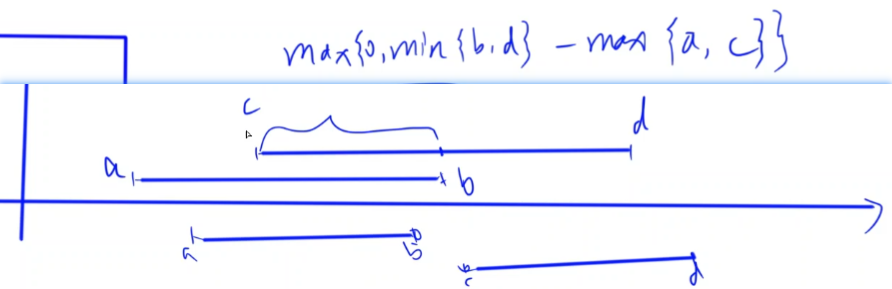 max{0,min{b,d} - max {a, c}}
c
d
a
b
a
b
c
d